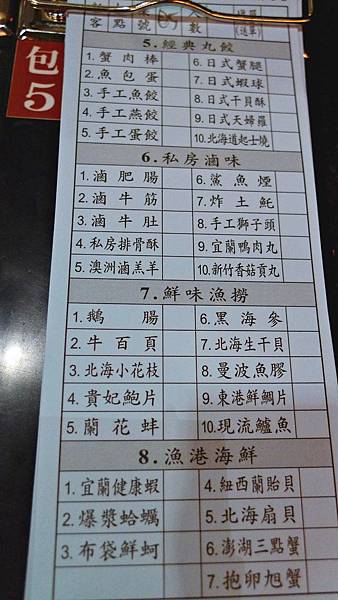 客 點 號 數 (送單)
包
5
5.經典丸餃
1.蟹肉棒 6.日式蟹腿
2.魚包蛋 7.日式蝦球
3.手工魚餃 8.日式干貝酥
4.手工燕餃 9.日式天婦羅
5.手工蛋餃 10.北海道起士燒
6.私房滷味
1.滷肥腸 6.鯊魚煙
2.滷牛筋 7.炸土魠
3.滷牛肚 8.手工獅子頭
4.私房排骨酥 9.宜蘭鴨肉丸
5.澳洲滷羔羊 10.新竹香菇貢丸
7.鮮味漁撈
1.鵝腸 6.黑海參
2.牛百頁 7.北海生干貝
3.北海小花枝 8.曼波魚膠
4.貴妃鮑片 9.東港鮮鯛片
5.蘭花蚌 10.現流鱸魚
8.漁港海鮮
1.宜蘭健康蝦 4.紐西蘭貽貝
2.爆漿蛤蠣 5.北海扇貝
3.布袋鮮蚵 6.澎湖三點蟹
7.抱卵旭蟹